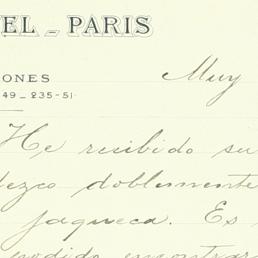 EL - PARIS
ONES
49 - 235-51
Muy
He recibido su
dezco doblemente
jaqueca. Es
podido encontrar